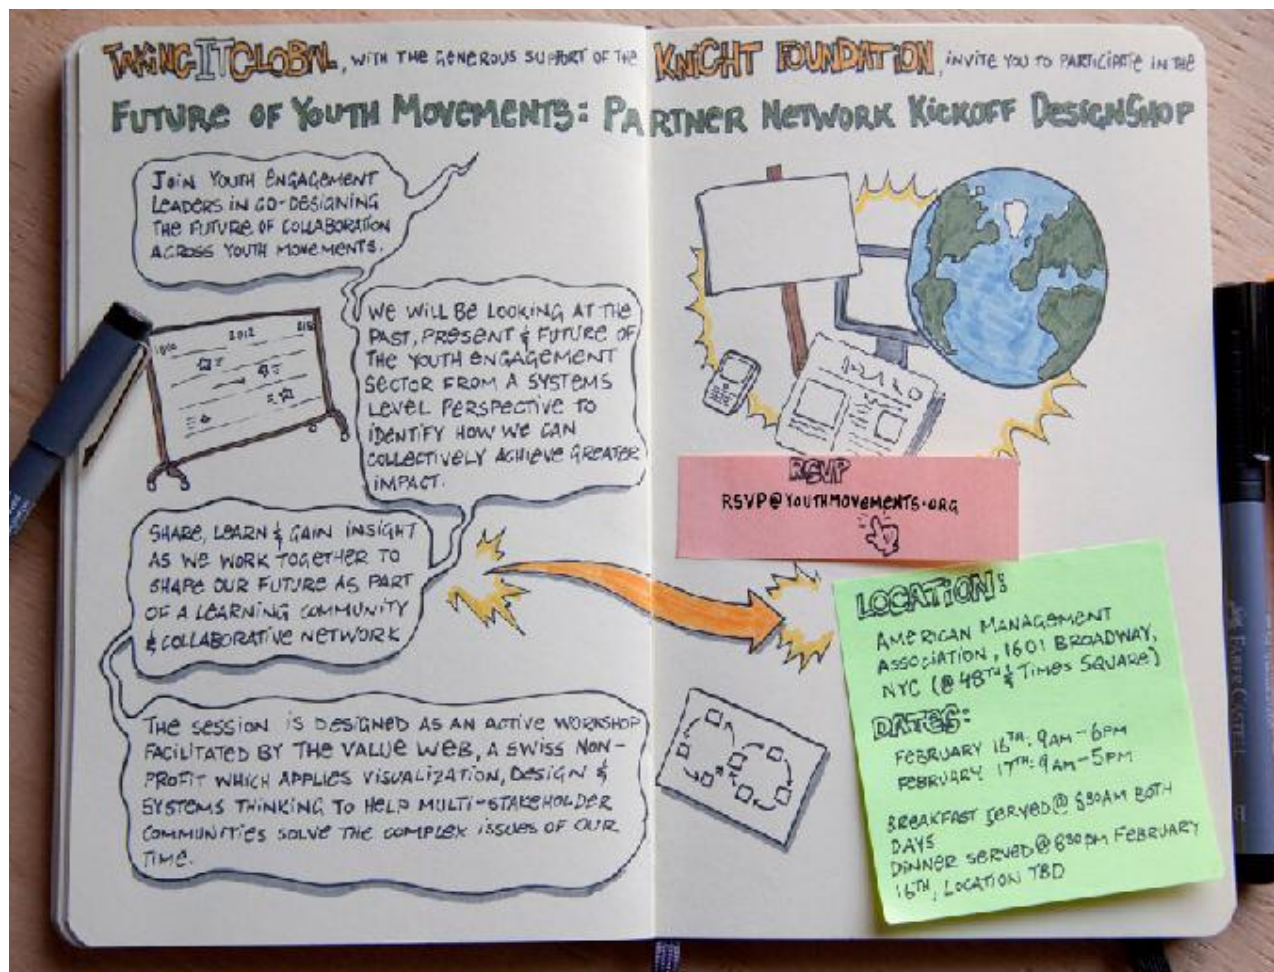 TAKINGITGLOBAL, WITH THE GENEROUS SUPPORT OF THE KNIGHT FOUNDATION, INVITE YOU TO PARTICIPATE IN THE
FUTURE OF YOUTH MOVEMENTS: PARTNER NETWORK KICKOFF DESIGNSHOP
JOIN YOUTH ENGAGEMENT
LEADERS IN CO-DESIGNING
THE FUTURE OF COLLABORATION
ACROSS YOUTH MOVEMENTS.
2012
WE WILL BE LOOKING AT THE
PAST, PRESENT & FUTURE OF
THE YOUTH ENGAGEMENT
SECTOR FROM A SYSTEMS
LEVEL PERSPECTIVE TO
IDENTIFY HOW WE CAN
COLLECTIVELY ACHIEVE GREATER
IMPACT.
SHARE, LEARN & GAIN INSIGHT
AS WE WORK TOGETHER TO
SHAPE OUR FUTURE AS PART
OF A LEARNING COMMUNITY
& COLLABORATIVE NETWORK
THE SESSION IS DESIGNED AS AN ACTIVE WORKSHOP
FACILITATED BY THE VALUE WEB, A SWISS NON-
PROFIT WHICH APPLIES VISUALIZATION, DESIGN &
SYSTEMS THINKING TO HELP MULTI-STAKEHOLDER
COMMUNITIES SOLVE THE COMPLEX ISSUES OF OUR
TIME.
RSVP
RSVP@YOUTHMOVEMENTS.ORG
LOCATION:
AMERICAN MANAGEMENT
ASSOCIATION, 1601 BROADWAY,
NYC (@ 48TH & TIMES SQUARE)
DATES:
FEBRUARY 16TH: 9AM-6PM
FEBRUARY 17TH: 9AM-5PM
BREAKFAST SERVED @ 830AM BOTH
DAYS
DINNER SERVED @ 630PM FEBRUARY
16TH, LOCATION TBD
FABER-CASTELL